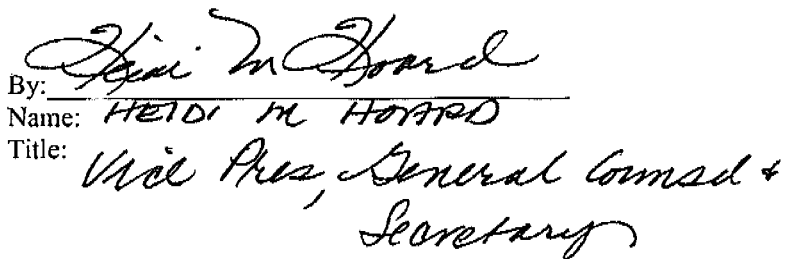 By: Heidi M Hoard
Name: HEIDI M HOARD
Title: Vice Pres, General Counsel &
Secretary